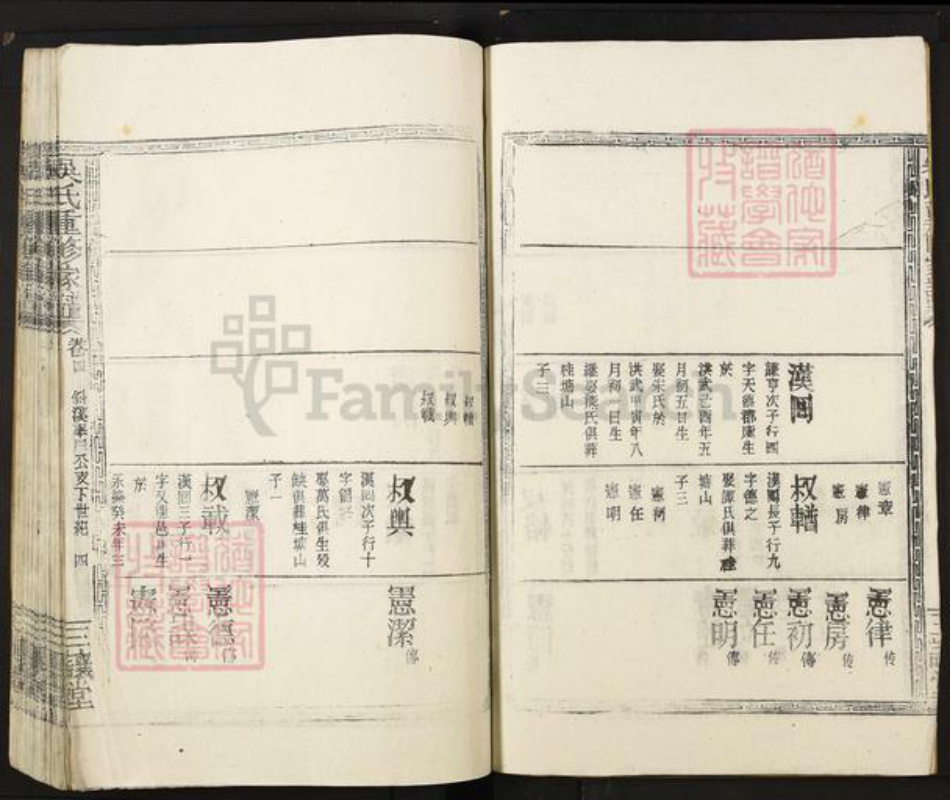 憲章
憲律
憲房
憲律 传
憲房 传
憲初 傳
憲任 传
憲明 傳
漢回
謙亨次子行四
字天
於
洪武己酉年五
月初五日生
娶朱氏於
洪武甲寅年八
月初一日生
氏俱葬
桂塘山
子三
叔輶
漢回長子行九
字德之
娶譚氏俱葬桂
塘山
子三
憲初
憲任
憲明
叔輶
叔輿
叔戟
叔輿
漢回次子行十
字
娶萬氏俱生歿
缺俱葬桂塘山
子一
憲潔
憲潔 傳
叔戟
漢回三子行一
於
永樂癸未年三
憲
傳
吳氏重修家譜
卷四
公支下世紀 四
三讓堂
FamilySearch
譜學會
收藏